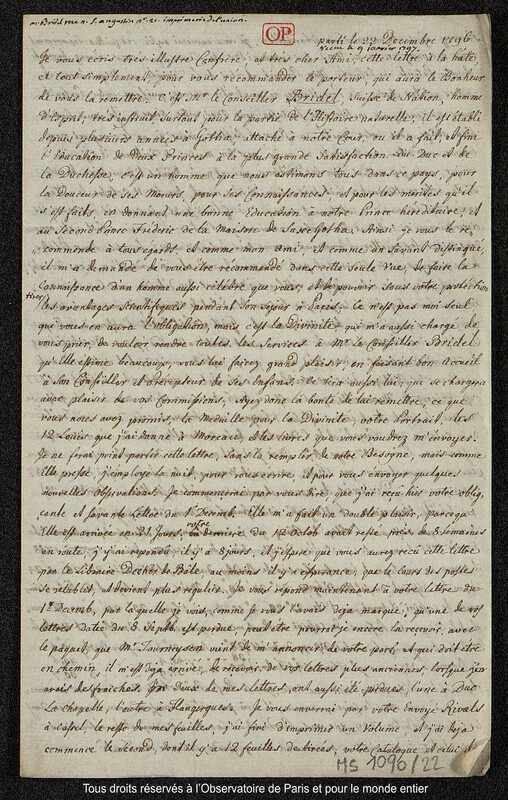 mr Bridel rue n. S. augustin n° 21. imprimerie de l'union.
OP
parti le 22 Decembre 1796
reçue le 9 janvier 1797.
Je vous écris très illustre Confrère, et très cher Ami, cette lettre à la hâte
et tout simplement, pour vous recommander le porteur, qui aura le Bonheur
de vous la remettre; c'est Mr le Conseiller Bridel, Suisse de Nation, homme
d'esprit, très instruit surtout pour la partie de l'Histoire naturelle; il est établi
depuis plusieurs années à Gotha, attaché à notre Cour, ou il a fait, et fini
l'Education de Deux Princes à la plus grande Satisfaction du Duc et de
la Duchesse, c'est un homme que nous estimons tous dans ce pays, pour
la Douceur de Ses Moeurs, pour ses Connaissances, et pour les merites qu'il
s'est faits, en donnant une bonne Education à notre Prince héréditaire, et
au Second Prince Frederic de la Maison de Saxe Gotha; Ainsi je vous le re,
commende à tous egards, et comme mon Ami, et comme un Savant distingué,
il m'a demandé de vous être récommendé dans cette seule vue, de faire la
Connoissance d'un homme aussi célèbre que vous, et de pouvoir sous votre protection
tirer les avantages scientifiques pendant son sejour à Paris. Ce n'est pas moi seul
qui vous en aura l'obligation, mais c'est la Divinité qui m'a aussi chargé de
vous prier, de vouloir rendre toutes les services à Mr le Conseiller Bridel
qu'Elle estime beaucoup, vous lui fairez grand plaisir, en faisant bon accueil
à son Conseiller et précepteur de ses Enfans. Ce sera aussi lui, qui se chargera
avec plaisir de vos Commissions, ayez donc la bonté de lui remettre, ce que
vous nous avez promis, la Medaille pour la Divinité, votre Portrait, les
12 Louis que j'ai donné à Morceau, et les livres que vous voudrez m'envoyer.
Je ne ferai point partir cette lettre, sans la remplir de votre Besogne, mais comme
Elle presse, j'employe la nuit, pour vous écrire, et pour vous envoyer quelques
nouvelles Observations. Je commencerai par vous dire, que j'ai reçu hier votre oblig,
eante et savante lettre du 1 Decemb. Elle m'a fait un double plaisir, parceque
Elle est arrivée en 21 Jours, votre derniere du 12 Octob avait resté, près de 8 Semaines
en route, j'y ai repondu il y a 8 jours, et j'espere que vous aurez reçu cette lettre
par le Libraire Decker de Bâle, au moins il y a esperance, que le cours des postes
se retablit, et devient plus régulier. Je vous répond maintenant à votre lettre du
1r Decemb, par laquelle je vois, comme je vous l'avais deja marqué, qu'une de vos
lettres datée du 8 Septb. est perdue, peut être pourrai je encore la recevoir avec
le paquet, que Mr Tourneysen vient de m'annoncer de votre part, et qui doit être
en chemin il m'est deja arrivé de récevoir de vos lettres plus anciennes lorsque j'en
avais des fraiches. Deux de mes lettres, ont aussi été perdues, l'une à Duc
La Chapelle, l'autre à Flaugergues. Je vous enverrai par votre Envoyé Rivals
à Cassel, le reste de mes feuilles, j'ai fini d'imprimer un Volume, et j'ai deja
commencé le second, dont il y a 12 feuilles de tirées, votre Catalogue et celui de
MS 1096/22
Tous droits réservés à l'Observatoire de Paris et pour le monde entier